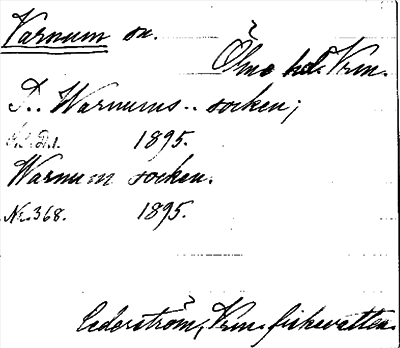 Varnum sn.
Ölme hd. Vrm.
D.. Warnums.. socken;
1895.
Warnum socken.
Nr. 368. 1895.
Cederström, Vrm. fiskevatten.